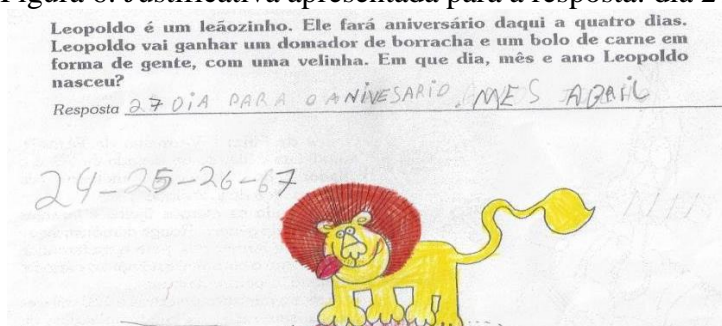 Figura 6: Justificativa apresentada para a resposta: dia 2
Leopoldo é um leãozinho. Ele fará aniversário daqui a quatro dias.
Leopoldo vai ganhar um domador de borracha e um bolo de carne em
forma de gente, com uma velinha. Em que dia, mês e ano Leopoldo
nasceu?
Resposta 27 DiA PARA O ANIVESARiO, MES ABRiL
24-25-26-67